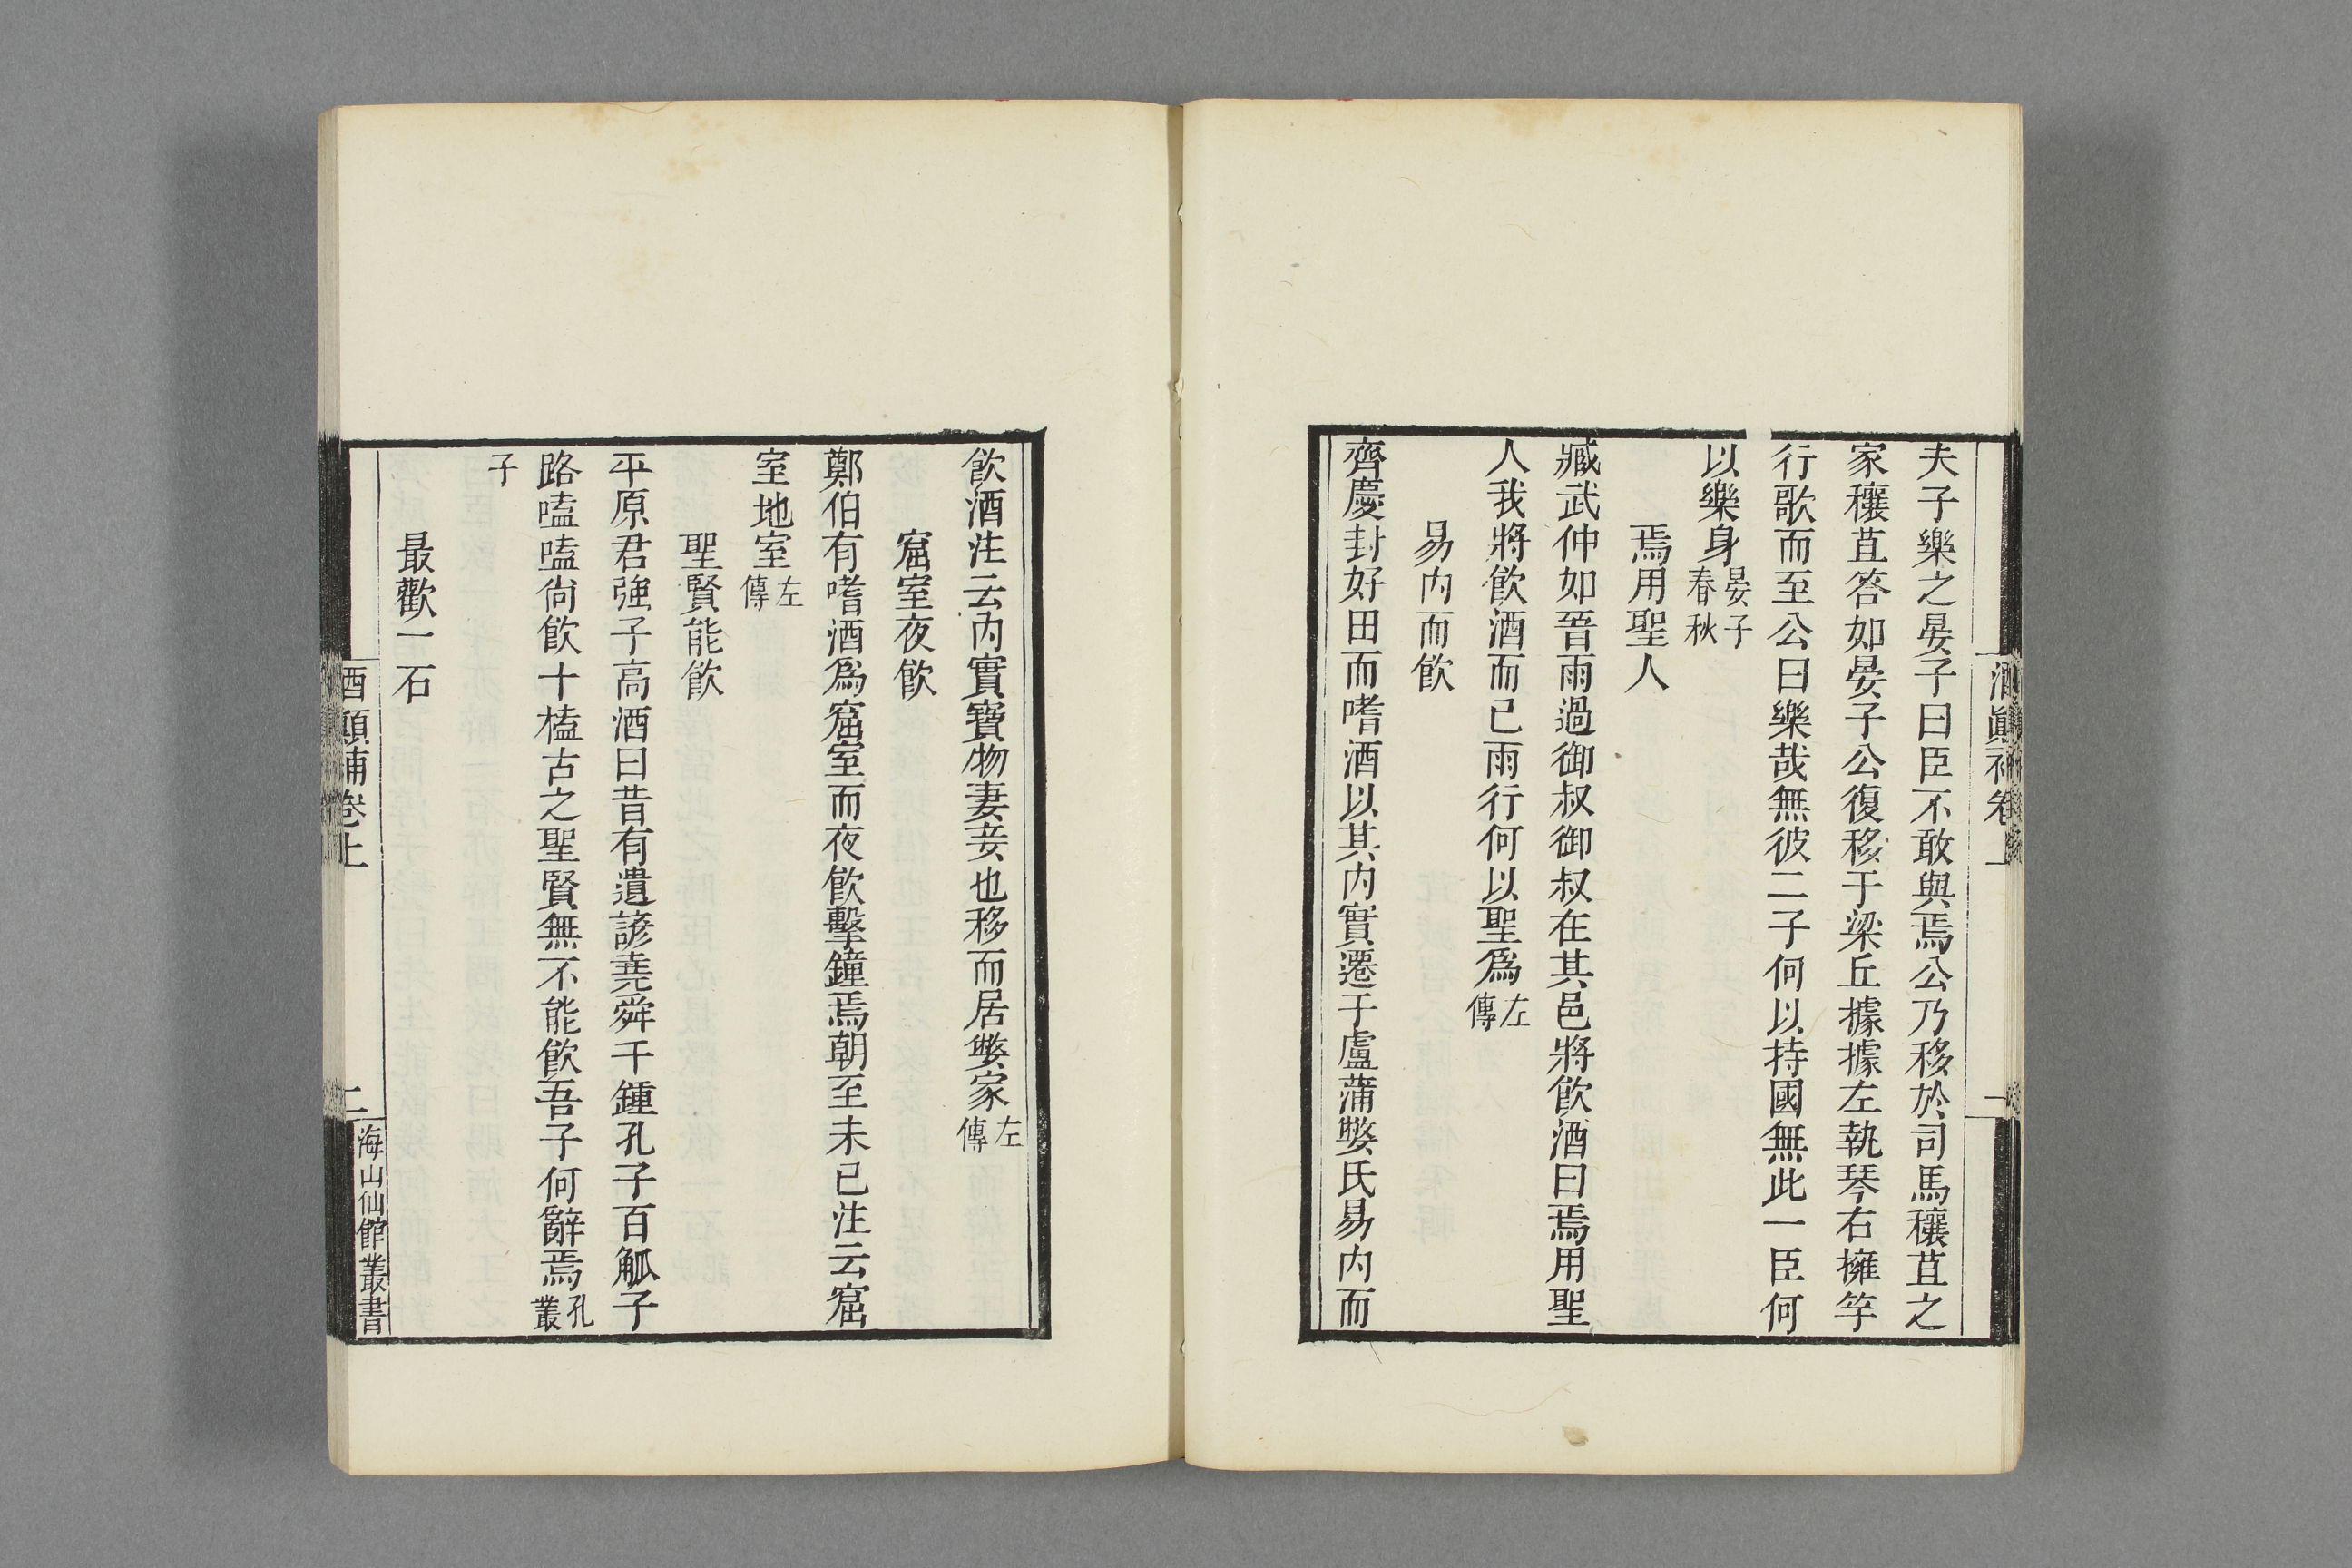 夫子樂之晏子曰臣不敢與焉公乃移於司馬穰苴之
家穰苴答如晏子公復移于梁丘據據左執琴右擁竽
行歌而至公曰樂哉無彼二子何以持國無此一臣何
以樂身晏子春秋
焉用聖人
臧武仲如晉雨過御叔御叔在其邑將飲酒曰焉用聖
人我將飲酒而已雨行何以聖爲左傳
易內而飲
齊慶封好田而嗜酒以其內實遷于盧蒲嫳氏易內而
飲酒注云內實寶物妻妾也移而居嫳家左傳
窟室夜飲
鄭伯有嗜酒爲窟室而夜飲擊鐘焉朝至未已注云窟
室地室左傳
聖賢能飲
平原君強子高酒曰昔有遺諺堯舜千鍾孔子百觚子
路嗑嗑尙飲十榼古之聖賢無不能飲吾子何辭焉孔叢
子
最歡一石
酒顛補卷上
二
海山仙館叢書